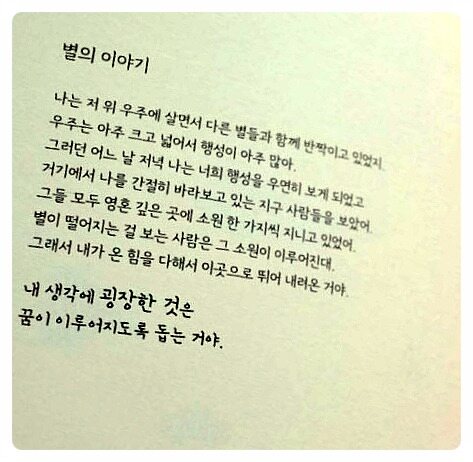 별의 이야기
나는 저 위 우주에 살면서 다른 별들과 함께 반짝이고 있었지.
우주는 아주 크고 넓어서 행성이 아주 많아.
그러던 어느 날 저녁 나는 너희 행성을 우연히 보게 되었고
거기에서 나를 간절히 바라보고 있는 지구 사람들을 보았어.
그들 모두 영혼 깊은 곳에 소원 한 가지씩 지니고 있었어.
별이 떨어지는 걸 보는 사람은 그 소원이 이루어진대.
그래서 내가 온 힘을 다해서 이곳으로 뛰어 내려온 거야.
내 생각에 굉장한 것은
꿈이 이루어지도록 돕는 거야.